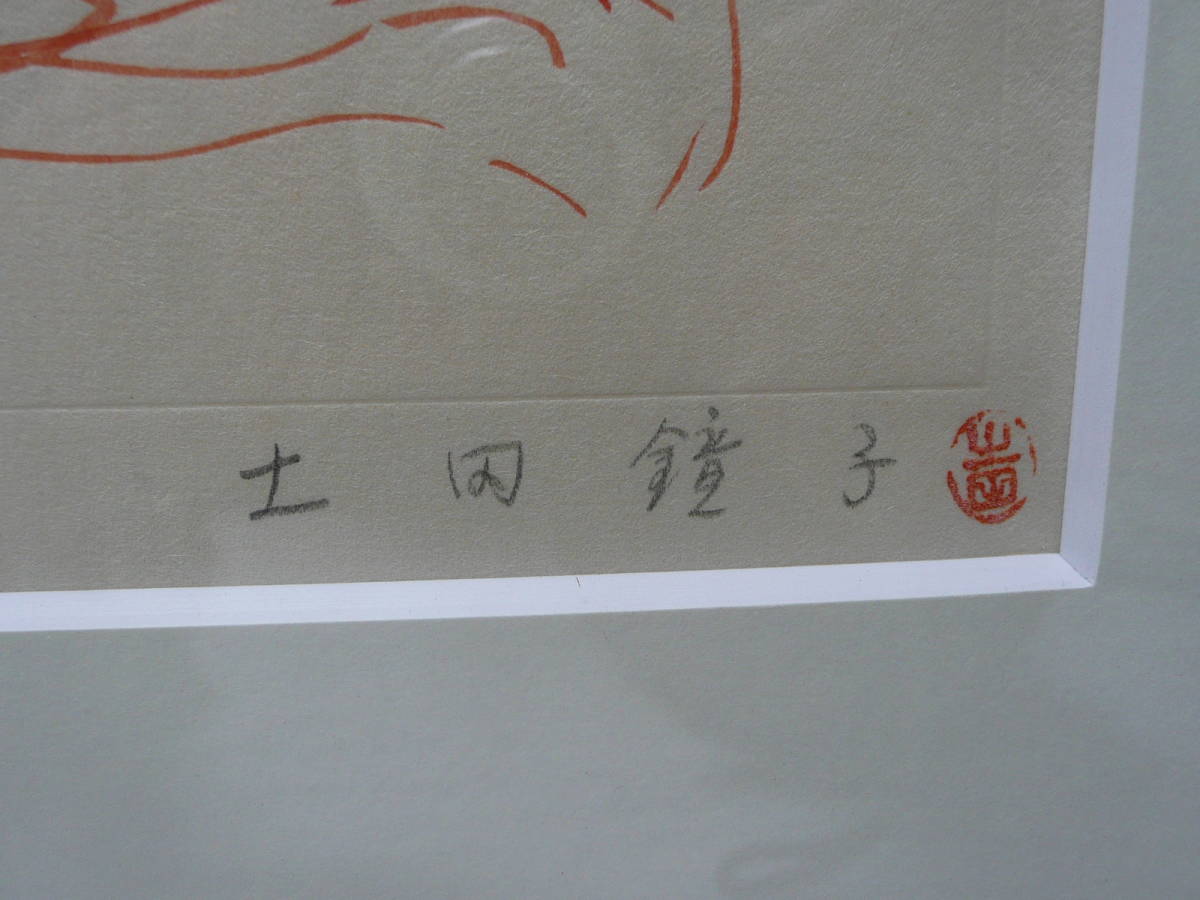 土田鐘子